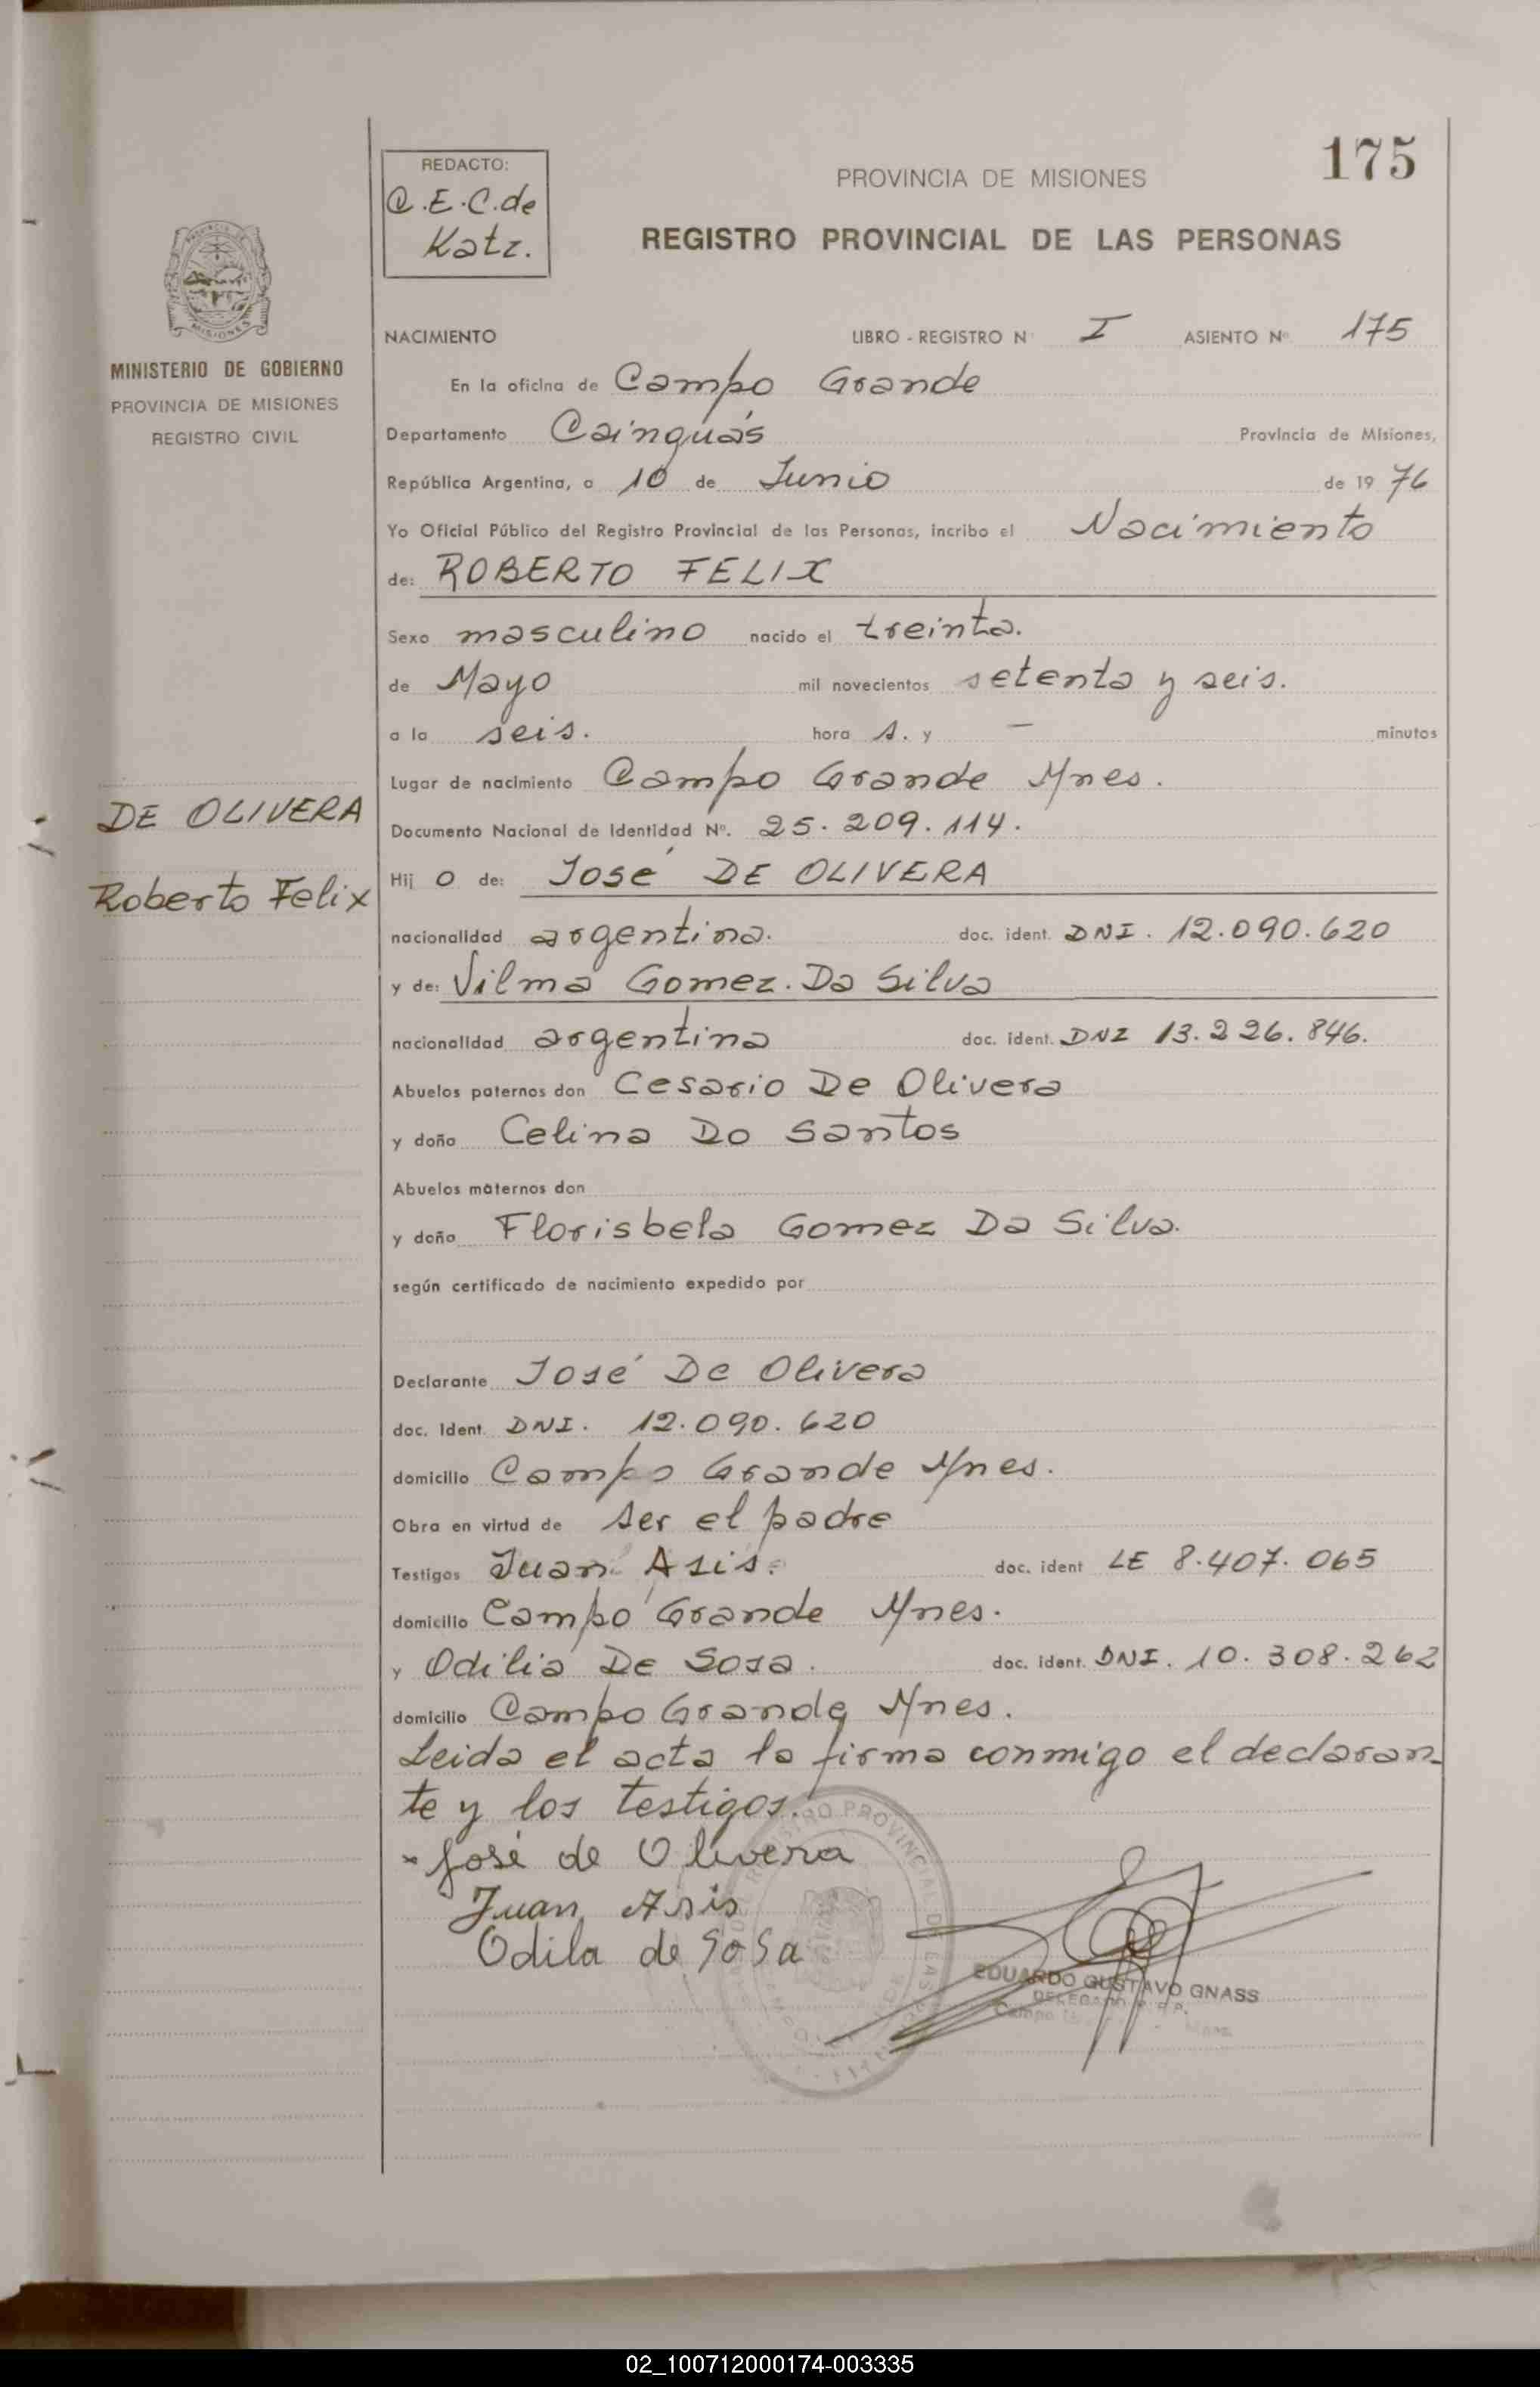 175
REDACTO:
C.E.C. de
Katz.
PROVINCIA DE MISIONES
REGISTRO PROVINCIAL DE LAS PERSONAS
MISIONES
MINISTERIO DE GOBIERNO
PROVINCIA DE MISIONES
REGISTRO CIVIL
DE OLIVERA
Roberto Felix
NACIMIENTO LIBRO - REGISTRO Nº I ASIENTO Nº 175
En la oficina de Campo Grande
Departamento Cainguás Provincia de Misiones,
República Argentina, a 10 de Junio de 19 76
Yo Oficial Público del Registro Provincial de las Personas, incribo el Nacimiento
de: ROBERTO FELIX
Sexo masculino nacido el treinta.
de Mayo mil novecientos setenta y seis.
a la seis. hora s. y — minutos
Lugar de nacimiento Campo Grande Mnes.
Documento Nacional de Identidad Nº. 25.209.114.
Hij o de: José DE OLIVERA
nacionalidad argentina. doc. ident. DNI. 12.090.620
y de: Vilma Gomez. Da Silva
nacionalidad argentina doc. ident. DNI 13.226.846.
Abuelos paternos don Cesario De Olivera
y doña Celina Do Santos
Abuelos maternos don
y doña Florisbela Gomez Da Silva.
según certificado de nacimiento expedido por
Declarante José De Olivera
doc. Ident. DNI. 12.090.620
domicilio Campo Grande Mnes.
Obra en virtud de ser el padre
Testigos Juan Asis. doc. ident LE 8.407.065
domicilio Campo Grande Mnes.
y Odilia De Sosa. doc. ident. DNI. 10.308.262
domicilio Campo Grande Mnes.
Leida el acta la firma conmigo el declaran-
te y los testigos.
José de Olivera
Juan Asis
Odila de Sosa
REGISTRO PROVINCIAL DE LAS
EDUARDO GUSTAVO GNASS
DELEGADO R.P.P.
Campo
02_100712000174-003335